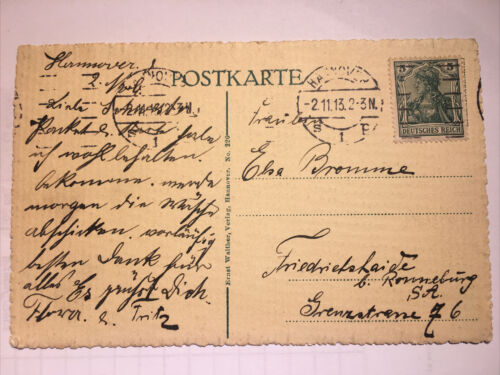 Hannover, d.
2. Nov.
POSTKARTE
Liebe Schwester,
Packet u. Karte habe
ich wohlbehalten.
Bekommen. werde
morgen die Wäsche
abschicken. vorläufig
besten Dank für
alles Es grüßt Dich
u. Fritz
HANNOVER
-2.11.13.2-3N.
S 1 P
5 5
DEUTSCHES REICH
Fräulein
Elsa Bromme
Friedrichshaide
b. Ronneburg
S.A.
Grenzstrasse 76
Ernst Walther, Verlag, Hannover. No. 220